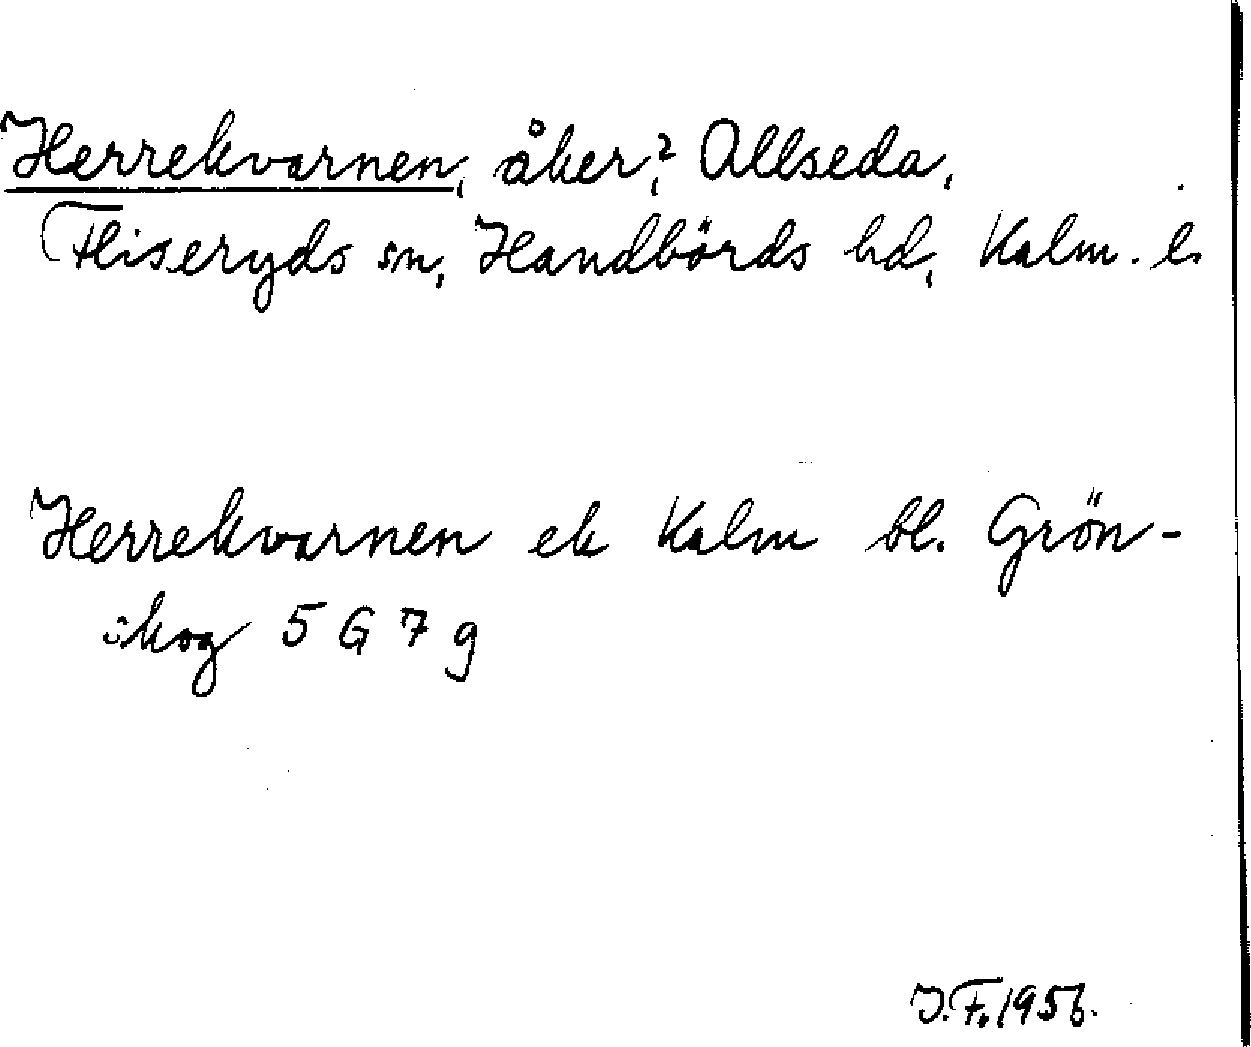 Herrekvarnen, åker?, Allseda,
Fliseryds sn, Handbörds hd, Kalm. l.
Herrekvarnen ek Kalm bl. Grön-
skog 5 G 7 g
J.F. 1956.